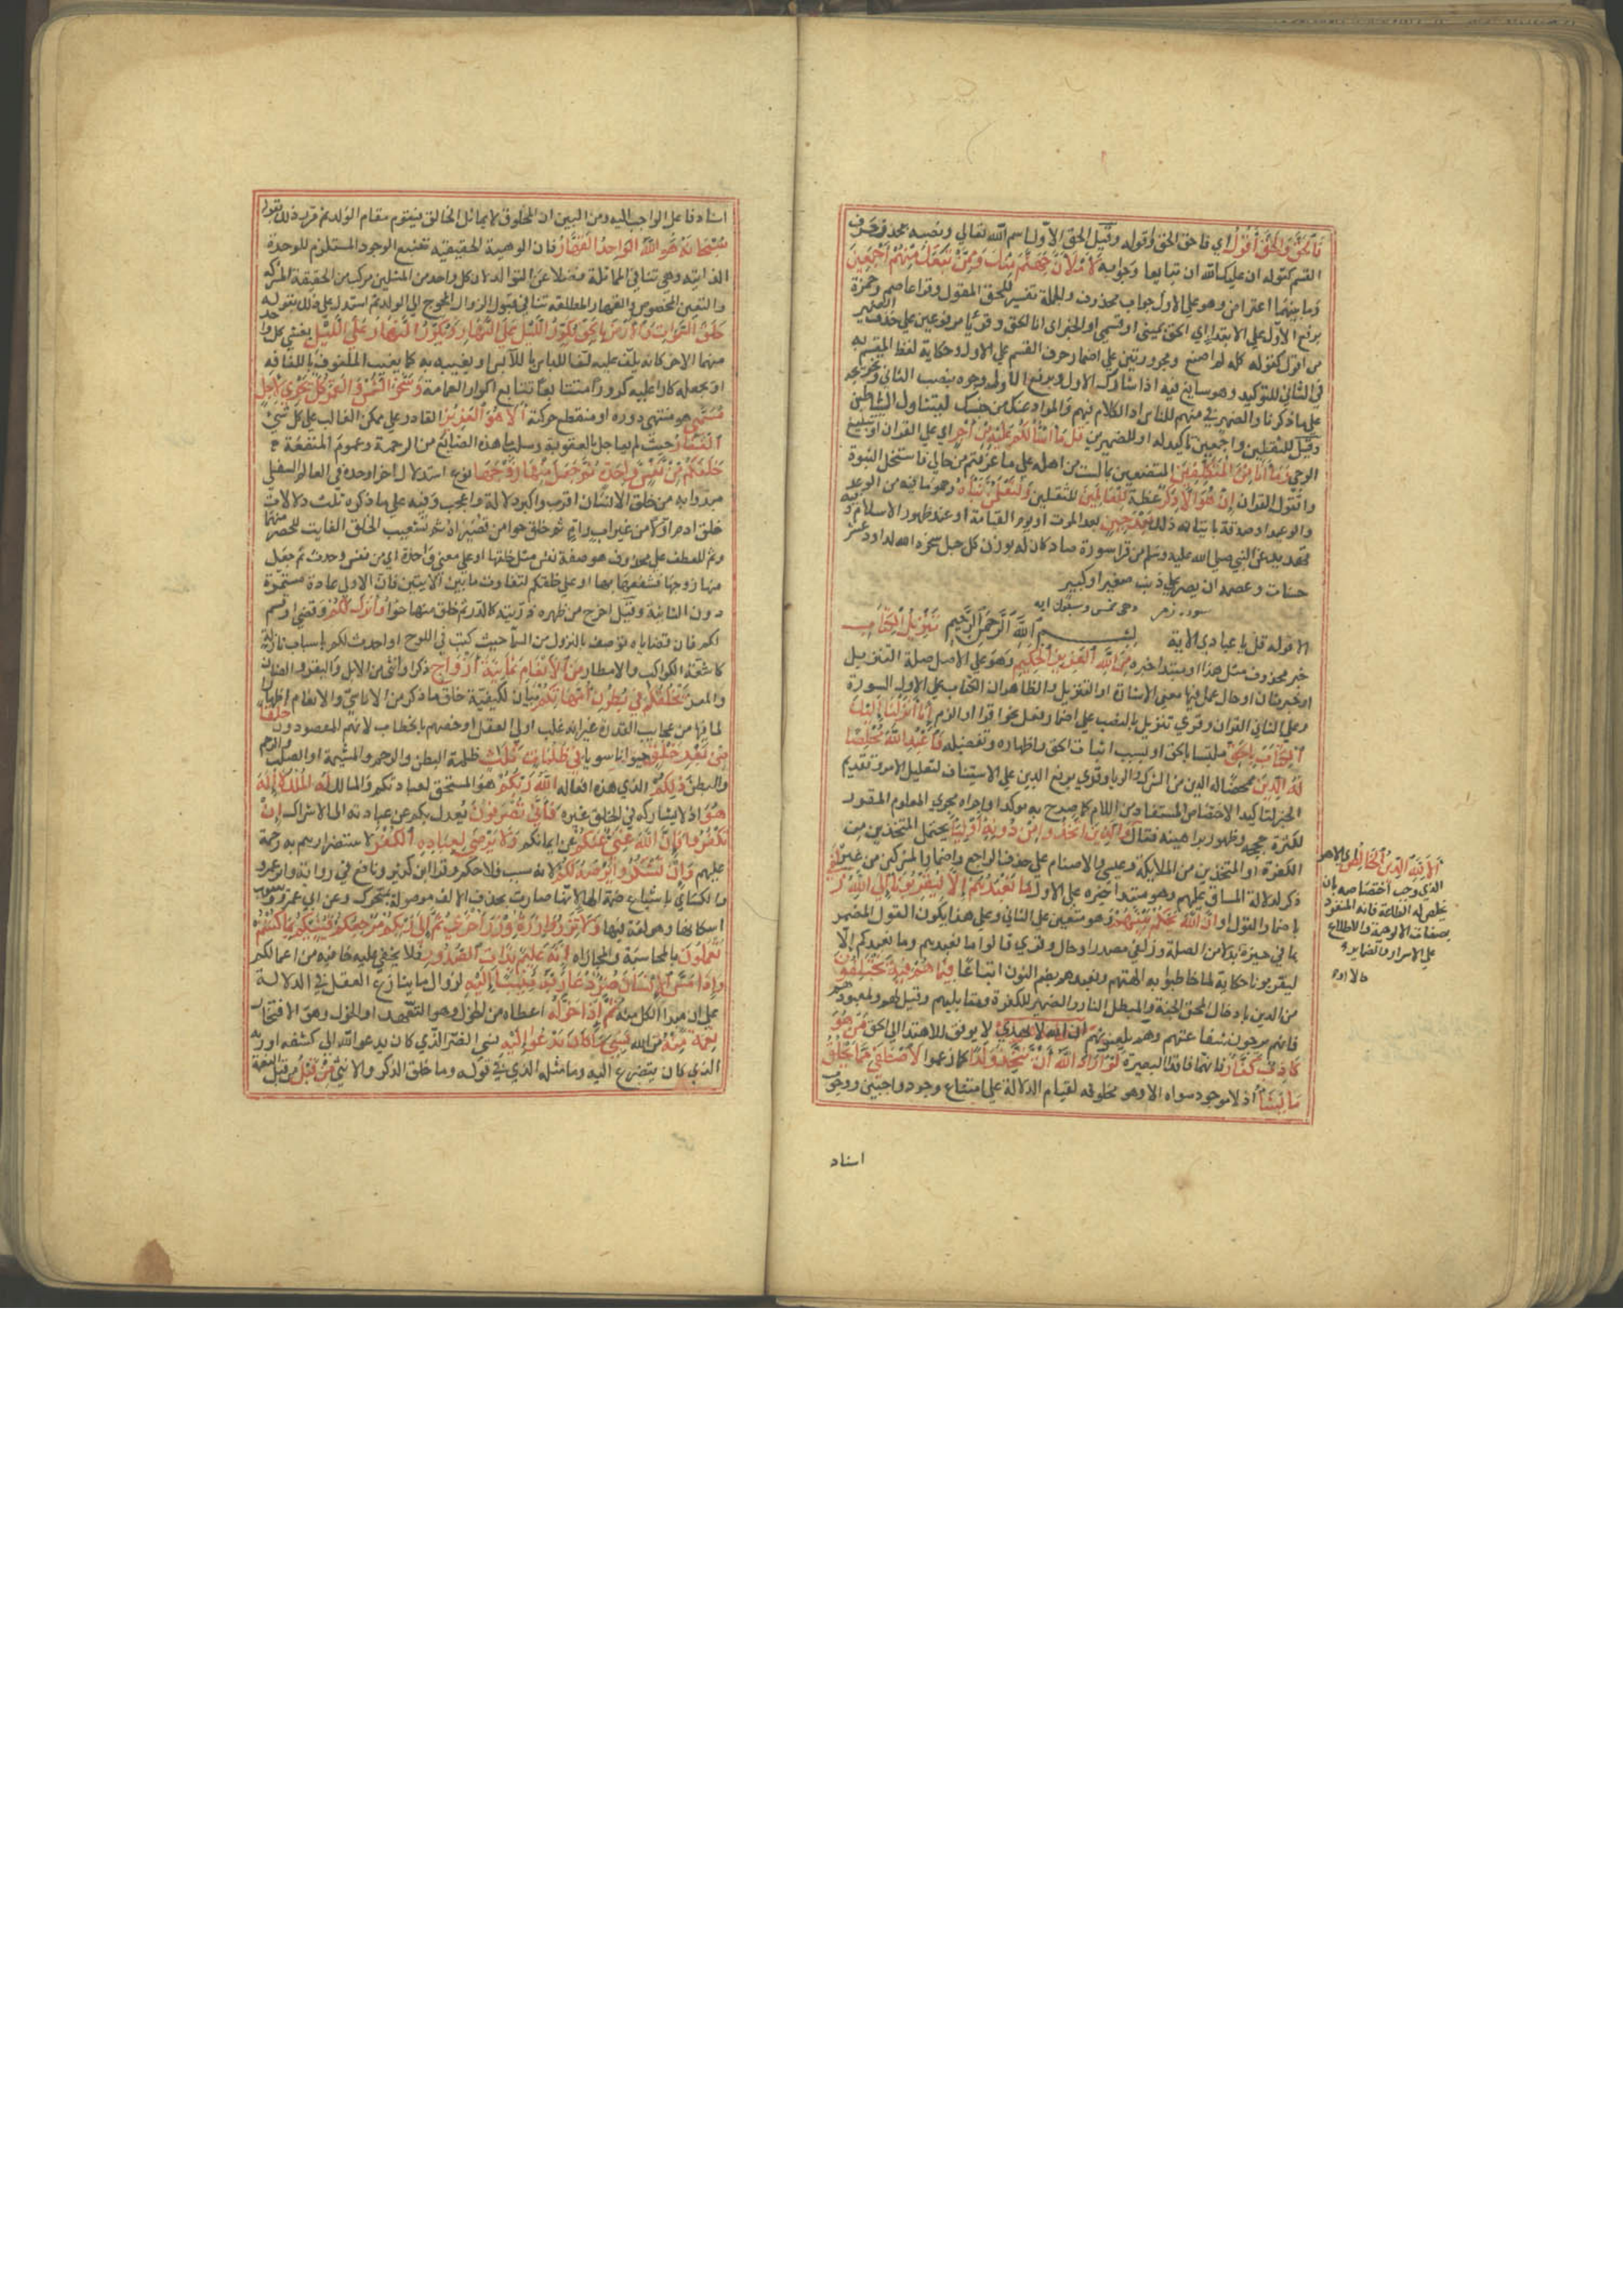 فَالْحَقُّ وَالْحَقَّ أَقُولُ اي فاحق الحق واقوله وقيل الحق الاول اسم الله تعالي ونصبه بحذف حرف
القسم كقوله ان عليك الله ان تبايعا وجوابه لَأَمْلَأَنَّ جَهَنَّمَ مِنْكَ وَمِمَّنْ تَبِعَكَ مِنْهُمْ أَجْمَعِينَ
وما بينهما اعتراض وهو علي الاول جواب محذوف والجملة تفسير للحق المقول وقرا عاصم وحمزة
برفع الاول علي الابتداء اي الحق يميني او قسمي او الخبر اي انا الحق وقرئا مرفوعين علي حذف الضمير
من اقول كقوله كله لم اصنع ومجرورين علي اضمار حرف القسم في الاول وحكاية لفظ المقسم به
في الثاني للتوكيد وهو سايغ فيه اذا شارك الاول وبرفع الاول وجره ونصب الثاني وتخريجه
علي ما ذكرنا والضمير في منهم للناس اذ الكلام فيهم والمراد منك من جنسك ليتناول الشياطين
وقيل للثقلين واجمعين تاكيد له او للضميرين قُلْ مَا أَسْأَلُكُمْ عَلَيْهِ مِنْ أَجْرٍ اي علي القران او تبليغ
الوحي وَمَا أَنَا مِنَ الْمُتَكَلِّفِينَ المتصنعين بما لست من اهله علي ما عرفتم من حالي فانتحل النبوة
واتقول القران إِنْ هُوَ إِلَّا ذِكْرٌ عظة لِلْعَالَمِينَ للثقلين وَلَتَعْلَمُنَّ نَبَأَهُ وهو ما فيه من الوعد
والوعيد او صدقه باتيانه ذلك بَعْدَ حِينٍ بعد الموت او يوم القيامة او عند ظهور الاسلام وفيه
تهديد عن النبي صلي الله عليه وسلم من قرا سورة صاد كان له بوزن كل جبل سخره الله لداود عشر
حسنات وعصمه ان يصر علي ذنب صغير او كبير
سورة زمر وهي خمس وسبعون ايه
الا قوله قل يا عبادي الاية بسم الله الرحمن الرحيم تَنْزِيلُ الْكِتَابِ
خبر محذوف مثل هذا او مبتدا خبره مِنَ اللَّهِ الْعَزِيزِ الْحَكِيمِ وهو علي الاول صلة التنزيل
او خبر ثان او حال عمل فيها معني الاشارة او التنزيل والظاهر ان الكتاب علي الاول السورة
وعلي الثاني القران وقري تنزيل بالنصب علي اضمار فعل نحو اقرا او الزم إِنَّا أَنْزَلْنَا إِلَيْكَ
الْكِتَابَ بِالْحَقِّ ملتبسا بالحق او بسبب اثبات الحق واظهاره وتفصيله فَاعْبُدِ اللَّهَ مُخْلِصًا
لَهُ الدِّينَ ممحضا له الدين من الشرك والريا وقري برفع الدين علي الاستيناف لتعليل الامر وتقديم
الخبر لتاكيد الاختصاص المستفاد من اللام كما صرح به موكدا واجراه مجري المعلوم المقرر
لكثرة حججه وظهور براهينه فقال وَالَّذِينَ اتَّخَذُوا مِنْ دُونِهِ أَوْلِيَاءَ يحتمل المتخذين من
الكفرة او المتخذين من الملايكة وعيسي والاصنام علي حذف الراجع واضمار المشركين من غير
ذكر لدلالة المساق عليهم وهو مبتدا خبره علي الاول مَا نَعْبُدُهُمْ إِلَّا لِيُقَرِّبُونَا إِلَى اللَّهِ زُلْفَى
باضمار القول او إِنَّ اللَّهَ يَحْكُمُ بَيْنَهُمْ وهو متعين علي الثاني وعلي هذا يكون القول المضمر
بما في حيزه بدلا من الصلة وزلفي مصدر او حال وقري قالوا ما نعبدهم وما نعبدكم إلّا
ليقربونا حكاية لما خاطبوا به الهتهم ونعبدهم بضم النون اتباعا فِيمَا هُمْ فِيهِ يَخْتَلِفُونَ
من الدين بادخال المحق الجنة والمبطل النار والضمير للكفرة ومقابليهم وقيل لهم ولمعبوديهم
فانهم يرجون شفاعتهم وهم يلعنونهم إِنَّ اللَّهَ لَا يَهْدِي لا يوفق للاهتدا الي الحق مَنْ هُوَ
كَاذِبٌ كَفَّارٌ فانهما فاقدا البصيرة لَوْ أَرَادَ اللَّهُ أَنْ يَتَّخِذَ وَلَدًا كما زعموا لَاصْطَفَى مِمَّا يَخْلُقُ
مَا يَشَاءُ اذ لا موجود سواه الا وهو مخلوقه لقيام الدلالة علي امتناع وجود واجبين ووجوب
اسناد
أَلَا لِلَّهِ الدِّينُ الْخَالِصُ اي الا هو
الذي وجب اختصاصه بان
يخلص له الطاعة فانه المتفرد
بصفات الالوهية والاطلاع
علي الاسرار والضماير
اسناد ما عدا الواجب اليه ومن البين ان المخلوق لا يماثل الخالق فيقوم مقام الولد ثم قرر ذلك بقوله
سُبْحَانَهُ هُوَ اللَّهُ الْوَاحِدُ الْقَهَّارُ فان الوهية الحقيقية تقتضي الوجود المستلزم للوحدة
الذاتية وهي تنافي المماثلة فضلا عن التوالد لان كل واحد من المثلين مركب من الحقيقة المشتركة
والتعين المخصوص والقهارية المطلقة تنافي قبول الزوال المحوج الي الولد ثم استدل علي ذلك بقوله
خَلَقَ السَّمَوَاتِ وَالْأَرْضَ بِالْحَقِّ يُكَوِّرُ اللَّيْلَ عَلَى النَّهَارِ وَيُكَوِّرُ النَّهَارَ عَلَى اللَّيْلِ يغشي كل واحد
منهما الاخر كانه يلف عليه لف اللباس باللابس او يغيبه به كما يغيب الملفوف باللفافه
او يجعله كارا عليه كرورا متتابعا تتابع اكوار العمامة وَسَخَّرَ الشَّمْسَ وَالْقَمَرَ كُلٌّ يَجْرِي لِأَجَلٍ
مُسَمًّى هو منتهي دوره او منقطع حركته أَلَا هُوَ الْعَزِيزُ القادر علي كل ممكن الغالب علي كل شيء
الْغَفَّارُ حيث لم يعاجل بالعقوبة وسلب ما في هذه الصنايع من الرحمة وعموم المنفعة
خَلَقَكُمْ مِنْ نَفْسٍ وَاحِدَةٍ ثُمَّ جَعَلَ مِنْهَا زَوْجَهَا نوع استدلال اخر اوجده في العالم السفلي
مبدوا به من خلق الانسان اقرب واكبر دلالة واعجب وفيه علي ما ذكره ثلث دلالات
خلق ادم اولا من غير اب وام ثم خلق حوا من قصيراه ثم تشعيب الخلق الفايت للحصر منهما
وثم للعطف علي محذوف هو صفة نفس مثل خلقها او علي معني واحدة اي من نفس وحدت ثم جعل
منها زوجها فشفعها بها او علي خلقكم لتفاوت ما بين الايتين فان الاولي عادة مستمرة
دون الثانية وقيل اخرج من ظهره ذريته كالذر ثم خلق منها حوا وَأَنْزَلَ لَكُمْ وقضي او قسم
لكم فان قضاياه توصف بالنزول من السما حيث كتبت في اللوح او احدث لكم باسباب نازلة
كاشعة الكواكب والامطار مِنَ الْأَنْعَامِ ثَمَانِيَةَ أَزْوَاجٍ ذكرا وانثي من الابل والبقر والضان
والمعز يَخْلُقُكُمْ فِي بُطُونِ أُمَّهَاتِكُمْ بيان لكيفية خلق ما ذكر من الاناسي والانعام اظهارا
لما فيها من عجايب القدرة غير انه غلب اولي العقل او خصهم بالخطاب لانهم المقصودون خَلْقًا
مِنْ بَعْدِ خَلْقٍ حيوانا سويا فِي ظُلُمَاتٍ ثَلَاثٍ ظلمة البطن والرحم والمشيمة او الصلب والرحم
والبطن ذَلِكُمُ الذي هذه افعاله اللَّهُ رَبُّكُمْ هو المستحق لعبادتكم والمالك لَهُ الْمُلْكُ لَا إِلَهَ إِلَّا
هُوَ اذ لا يشاركه في الخلق غيره فَأَنَّى تُصْرَفُونَ يعدل بكم عن عبادته الي الاشراك إِنْ
تَكْفُرُوا فَإِنَّ اللَّهَ غَنِيٌّ عَنْكُمْ عن ايمانكم وَلَا يَرْضَى لِعِبَادِهِ الْكُفْرَ لاستضرارهم به رحمة
عليهم وَإِنْ تَشْكُرُوا يَرْضَهُ لَكُمْ لانه سبب فلاحكم وقرا ابن كثير ونافع في رواية وابو عمرو
والكسائي باشباع ضمة الها لانها صارت بحذف الالف موصولة بمتحرك وعن ابي عمرو ويعقوب
اسكانها وهو لغة فيها وَلَا تَزِرُ وَازِرَةٌ وِزْرَ أُخْرَى ثُمَّ إِلَى رَبِّكُمْ مَرْجِعُكُمْ فَيُنَبِّئُكُمْ بِمَا كُنْتُمْ
تَعْمَلُونَ بالمحاسبة والمجازاه إِنَّهُ عَلِيمٌ بِذَاتِ الصُّدُورِ فلا يخفي عليه خافية من اعمالكم
وَإِذَا مَسَّ الْإِنْسَانَ ضُرٌّ دَعَا رَبَّهُ مُنِيبًا إِلَيْهِ لزوال ما ينازع العقل في الدلالة
علي ان مبدا الكل منه ثُمَّ إِذَا خَوَّلَهُ اعطاه من الخول وهو التعهد او الخول وهو الافتخار
نِعْمَةً مِنْهُ من الله نَسِيَ مَا كَانَ يَدْعُو إِلَيْهِ نسي الضر الذي كان يدعو الله الي كشفه او ربه
الذي كان يتضرع اليه وما مثله الذي في قوله وما خلق الذكر والانثي مِنْ قَبْلُ من قبل النعمة